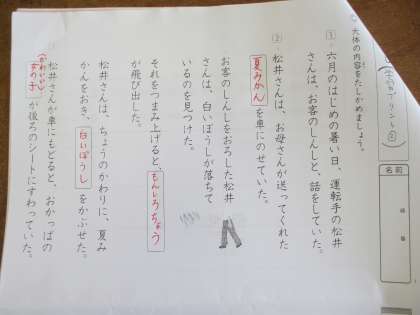 大体の内容をたしかめましょう。
① 六月のはじめの暑い日、運転手の松井
さんは、お客のしんしと、話をしていた。
② 松井さんは、お母さんが送ってくれた
夏みかんを車にのせていた。
お客のしんしをおろした松井
さんは、白いぼうしが落ちて
いるのを見つけた。
それをつまみ上げると、もんしろちょう
が飛び出した。
松井さんは、ちょうのかわりに、夏み
かんをおき、白いぼうしをかぶせた。
松井さんが車にもどると、おかっぱの
(かわいい)
女の子が後ろのシートにすわっていた。
名前